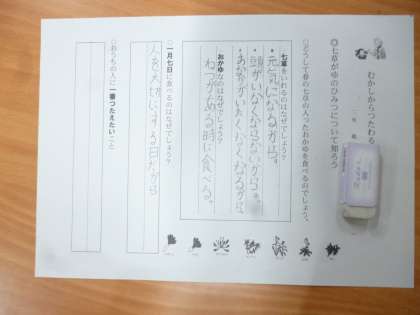 むかしからつたわる
◎七草がゆのひみつについて知ろう
○どうして春の七草の入ったおかゆを食べるのでしょう。
七草をいれるのはなぜでしょう？
・元気になるから。
・頭がいたくならないから。
・おなかがいたくなくなるから
おかゆなのはなぜでしょう？
わつかがある時に食べる。
○一月七日に食べるのはなぜでしょう？
人を大切にする日だから
○おうちの人に一番つたえたいこと